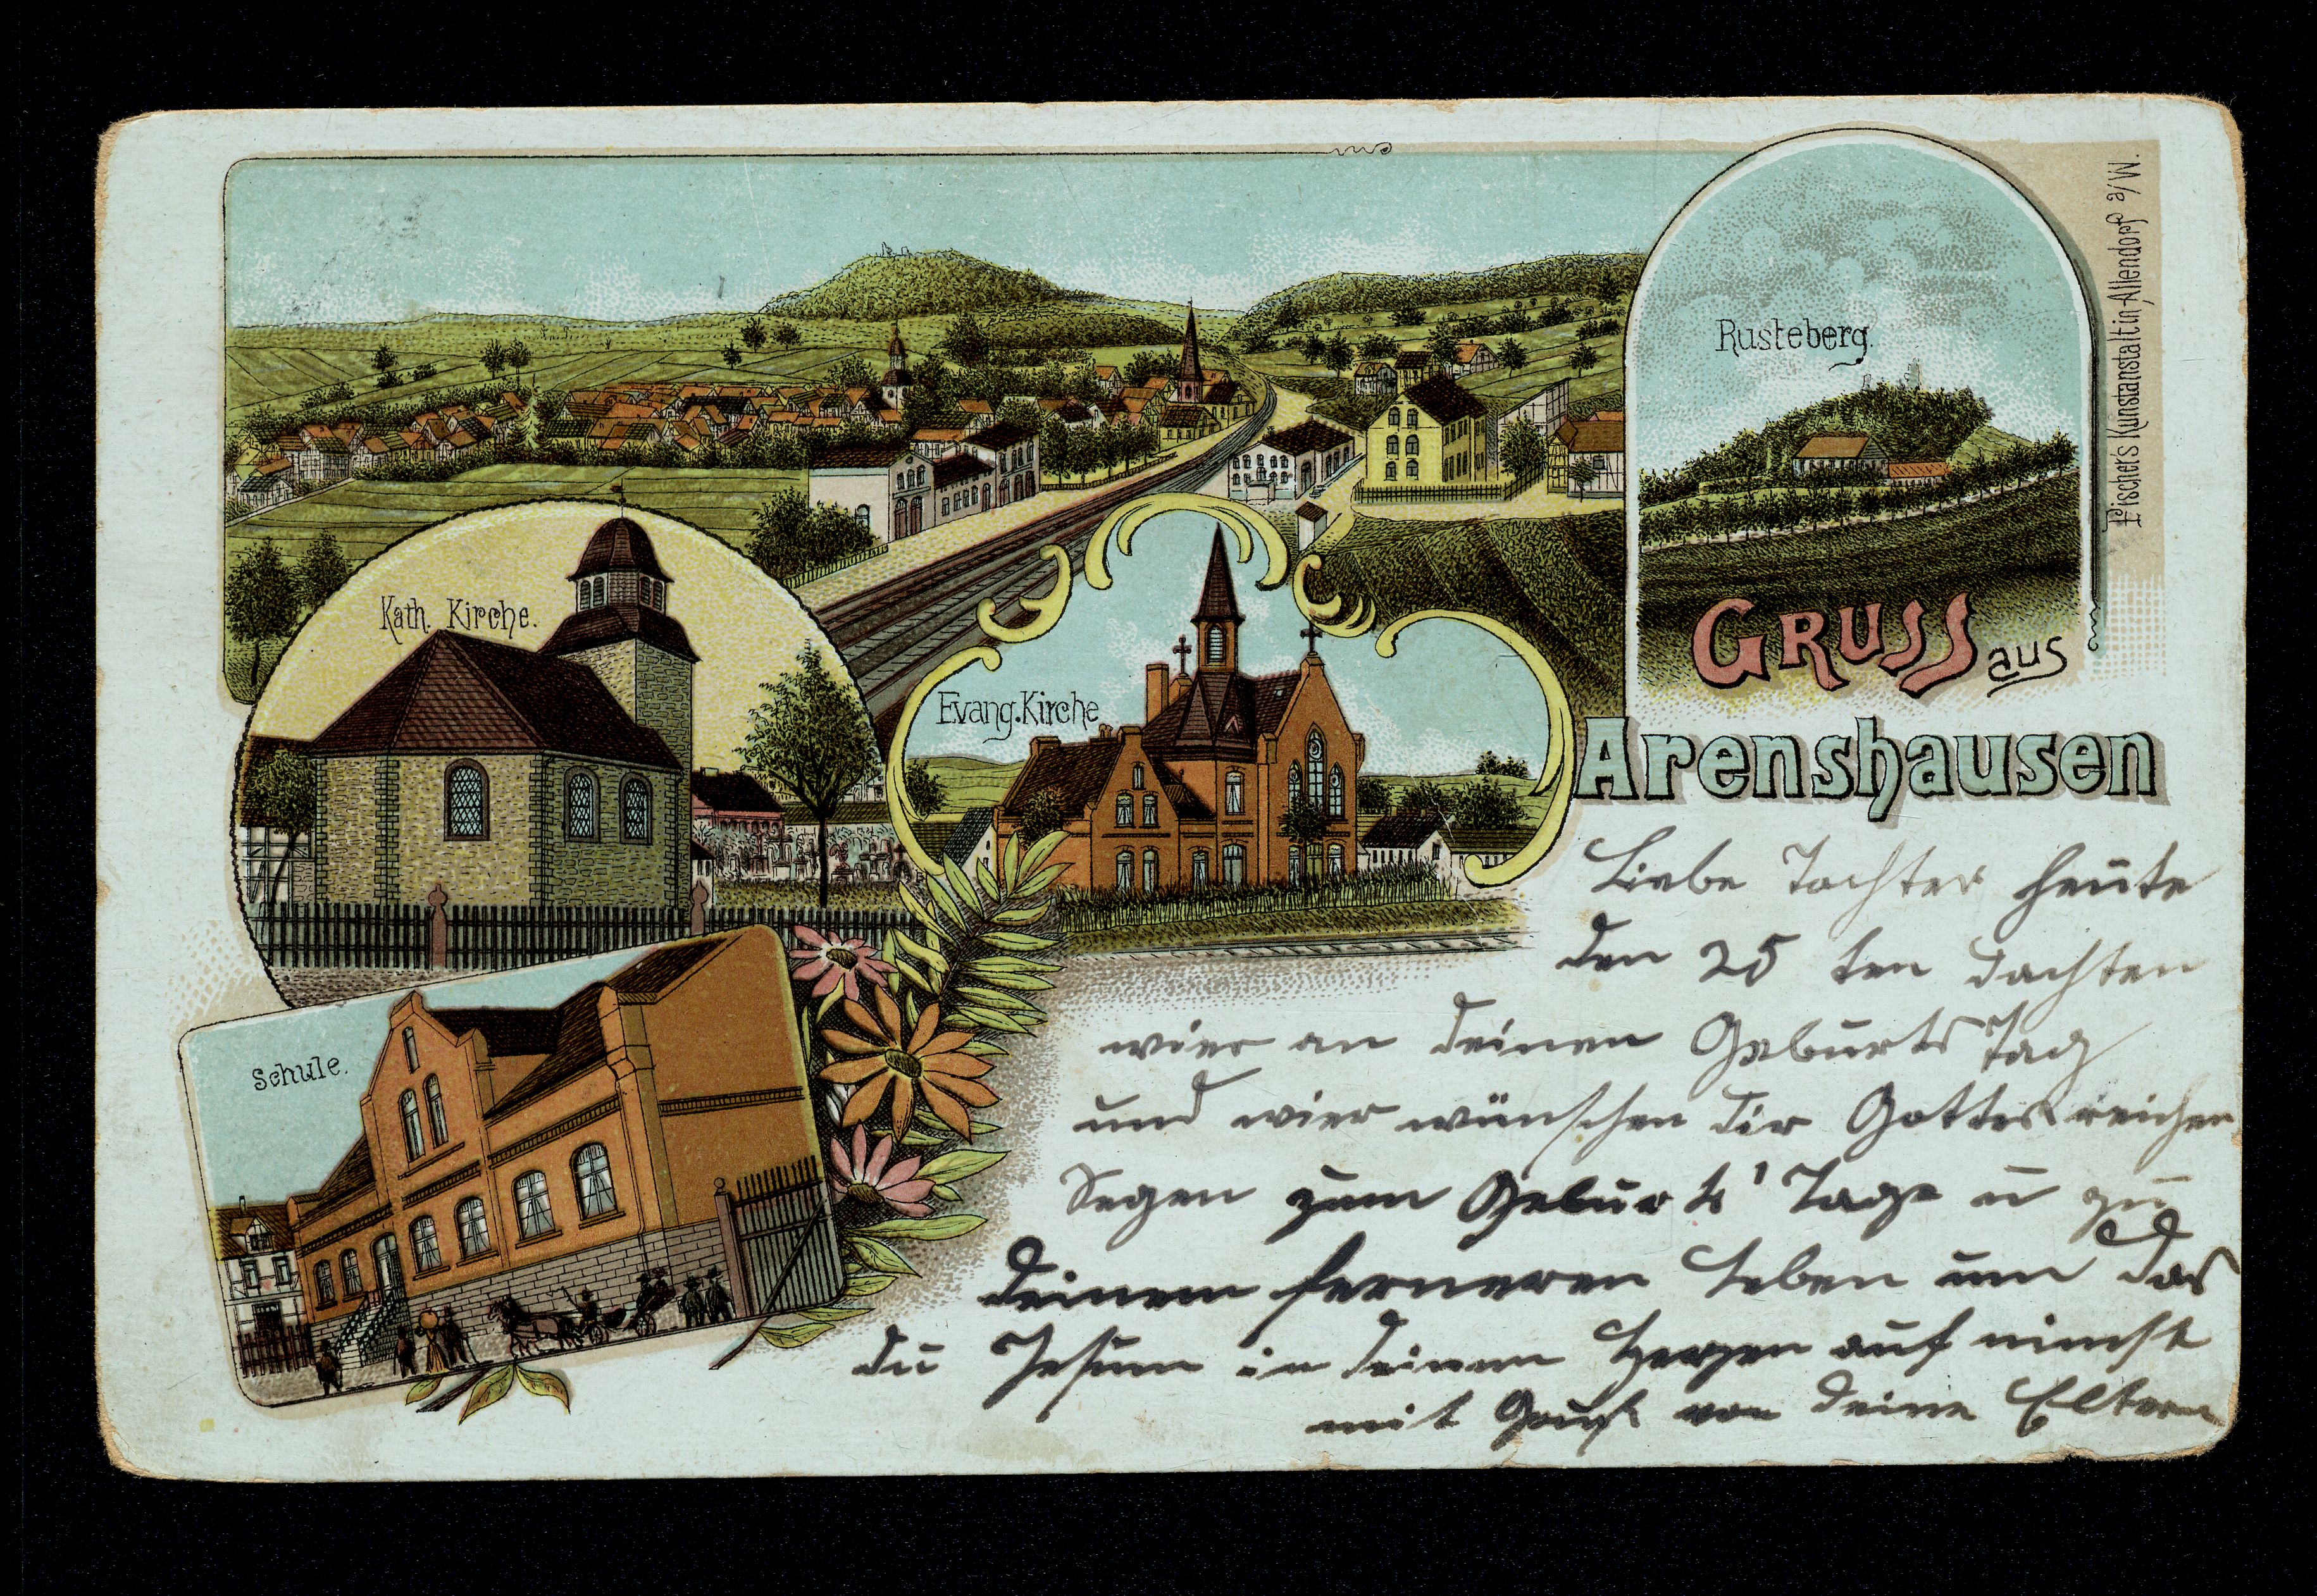 Fischer's Kunstanstalt in Allendorf a/W.
Rusteberg.
Kath. Kirche.
Evang. Kirche
Schule.
Gruss aus
Arenshausen
Liebe Tochter heute
den 25 ten dachten
wier an deinen Geburts Tag
und wier wünschen dir Gottes reichen
Segen zum Geburts Tage u zu
deinem ferneren Leben um das
du Jesum in deinem Herzen auf nimst
mit Gruß von deine Eltern